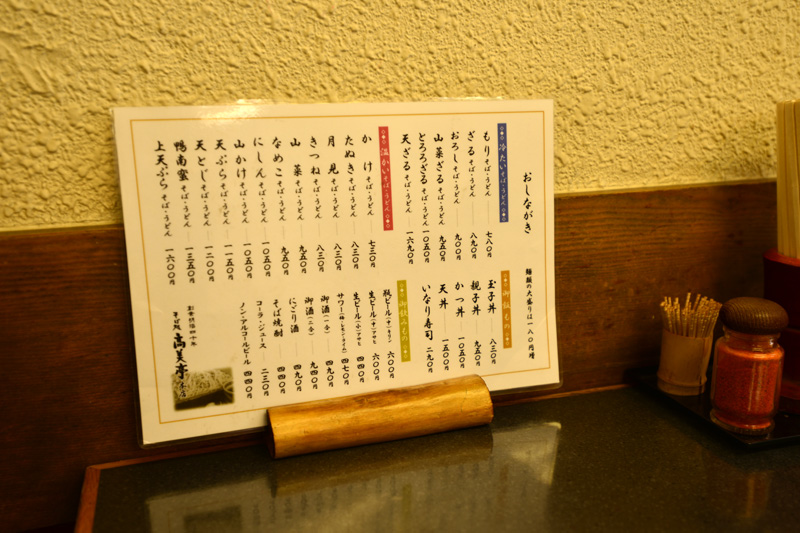 おしながき
麺類の大盛りは一八〇円増
冷たいそば・うどん
もり そば・うどん 七八〇円
ざる そば・うどん 八九〇円
おろし そば・うどん 九〇〇円
山菜ざる そば・うどん 九五〇円
とろろざる そば・うどん 一〇五〇円
天ざる そば・うどん 一六九〇円
温かいそば・うどん
かけ そば・うどん 七三〇円
たぬき そば・うどん 八三〇円
月見 そば・うどん 八三〇円
きつね そば・うどん 八三〇円
山菜 そば・うどん 九五〇円
なめこ そば・うどん 九五〇円
にしん そば・うどん 一〇五〇円
山かけ そば・うどん 一〇五〇円
天ぷら そば・うどん 一一五〇円
天とじ そば・うどん 一二〇〇円
鴨南蛮 そば・うどん 一三五〇円
上天ぷら そば・うどん 一六〇〇円
御飯もの
玉子丼 八三〇円
親子丼 九五〇円
かつ丼 一〇五〇円
天丼 一五〇〇円
いなり寿司 二九〇円
御飲みもの
瓶ビール(中)キリン 六〇〇円
生ビール(中)アサヒ 六〇〇円
生ビール(小)アサヒ 四四〇円
サワー(梅・レモン・ライム) 四七〇円
御酒(一合) 四九〇円
御酒(二合) 九四〇円
にごり酒 四九〇円
そば焼酎 四四〇円
コーラ・ジュース 二三〇円
ノン・アルコールビール 四四〇円
そば処 高美亭 本店